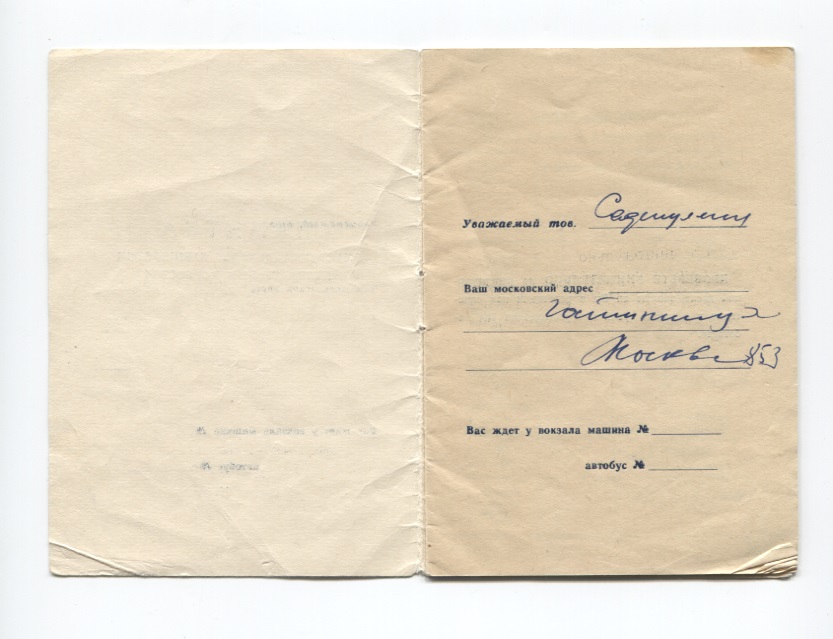 Уважаемый тов.
Ваш московский адрес
гостиница
Москва 853
Вас ждет у вокзала машина №
автобус №